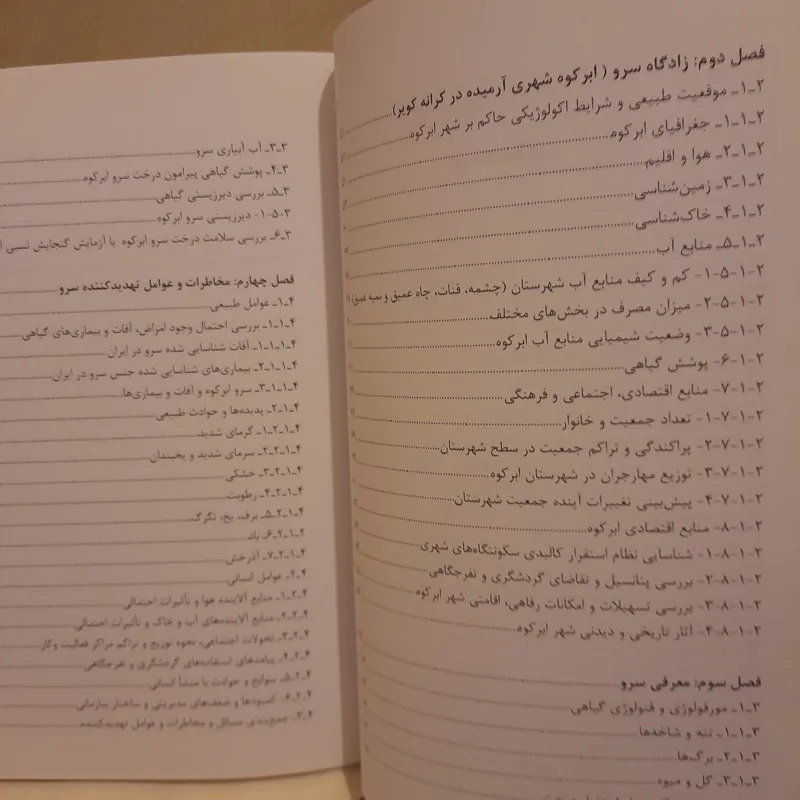 فصل دوم: زادگاه سرو ( ابرکوه شهری آرمیده در کرانه کویر)
۲_۱_ موقعیت طبیعی و شرایط اکولوژیکی حاکم بر شهر ابرکوه
۲_۱_۱_ جغرافیای ابرکوه
۲_۱_۲_ هوا و اقلیم
۲_۱_۳_ زمین‌شناسی
۲_۱_۴_ خاک‌شناسی
۲_۱_۵_ منابع آب
۲-۱-۵-۱- کم و کیف منابع آب شهرستان (چشمه، قنات، چاه عمیق و نیمه عمیق)
۲-۱-۵-۲- میزان مصرف در بخش‌های مختلف
۲-۱-۵-۳- وضعیت شیمیایی منابع آب ابرکوه
۲-۱-۶- پوشش گیاهی
۲-۱-۷- منابع اقتصادی، اجتماعی و فرهنگی
۲-۱-۷-۱- تعداد جمعیت و خانوار
۲-۱-۷-۲- پراکندگی و تراکم جمعیت در سطح شهرستان
۲-۱-۷-۳- توزیع مهاجران در شهرستان ابرکوه
۲-۱-۷-۴- پیش‌بینی تغییرات آینده جمعیت شهرستان
۲-۱-۸- منابع اقتصادی ابرکوه
۲-۱-۸-۱- شناسایی نظام استقرار کالبدی سکونتگاه‌های شهری
۲-۱-۸-۲- بررسی پتانسیل و تقاضای گردشگری و تفرجگاهی
۲-۱-۸-۳- بررسی تسهیلات و امکانات رفاهی، اقامتی شهر ابرکوه
۲-۱-۸-۴- آثار تاریخی و دیدنی شهر ابرکوه
فصل سوم: معرفی سرو
۳_۱_ مورفولوژی و فنولوژی گیاهی
۳_۱_۱_ تنه و شاخه‌ها
۳_۱_۲_ برگ‌ها
۳_۱_۳_ گل و میوه
۳_۳_ آب آبیاری سرو
۳_۴_ پوشش گیاهی پیرامون درخت سرو ابرکوه
۳_۵_ بررسی دیرزیستی گیاهی
۳-۵-۱- دیرزیستی سرو ابرکوه
۳_۶_ بررسی سلامت درخت سرو ابرکوه با آزمایش گنجایش نسبی
فصل چهارم: مخاطرات و عوامل تهدیدکننده سرو
۴_۱_ عوامل طبیعی
۴_۱_۱_ بررسی احتمال وجود امراض، آفات و بیماری‌های گیاهی
۴_۱_۱_۱_ آفات شناسایی شده سرو در ایران
۴_۱_۱_۲_ بیماری‌های شناسایی شده جنس سرو در ایران
۴_۱_۱_۳_ سرو ابرکوه و آفات و بیماری‌ها
۴_۱_۲_ پدیده‌ها و حوادث طبیعی
۴_۱_۲_۱_ گرمای شدید
۴_۱_۲_۲_ سرمای شدید و یخبندان
۴_۱_۲_۳_ خشکی
۴_۱_۲_۴_ رطوبت
۴_۱_۲_۵_ برف، یخ، تگرگ
۴_۱_۲_۶_ باد
۴_۱_۲_۷_ آذرخش
۴_۲_ عوامل انسانی
۴_۲_۱_ منابع آلاینده هوا و تأثیرات احتمالی
۴_۲_۲_ منابع آلاینده‌های آب و خاک و تأثیرات احتمالی
۴_۲_۳_ تحولات اجتماعی، نحوه توزیع و تراکم مراکز فعالیت وکار
۴_۲_۴_ پیامدهای استفاده‌های گردشگری و تفرجگاهی
۴_۲_۵_ سوانح و حوادث با منشأ انسانی
۴_۲_۶_ کمبودها و ضعف‌های مدیریتی و ساختار سازمانی
۴_۳_ جمع‌بندی مسائل و مخاطرات و عوامل تهدیدکننده